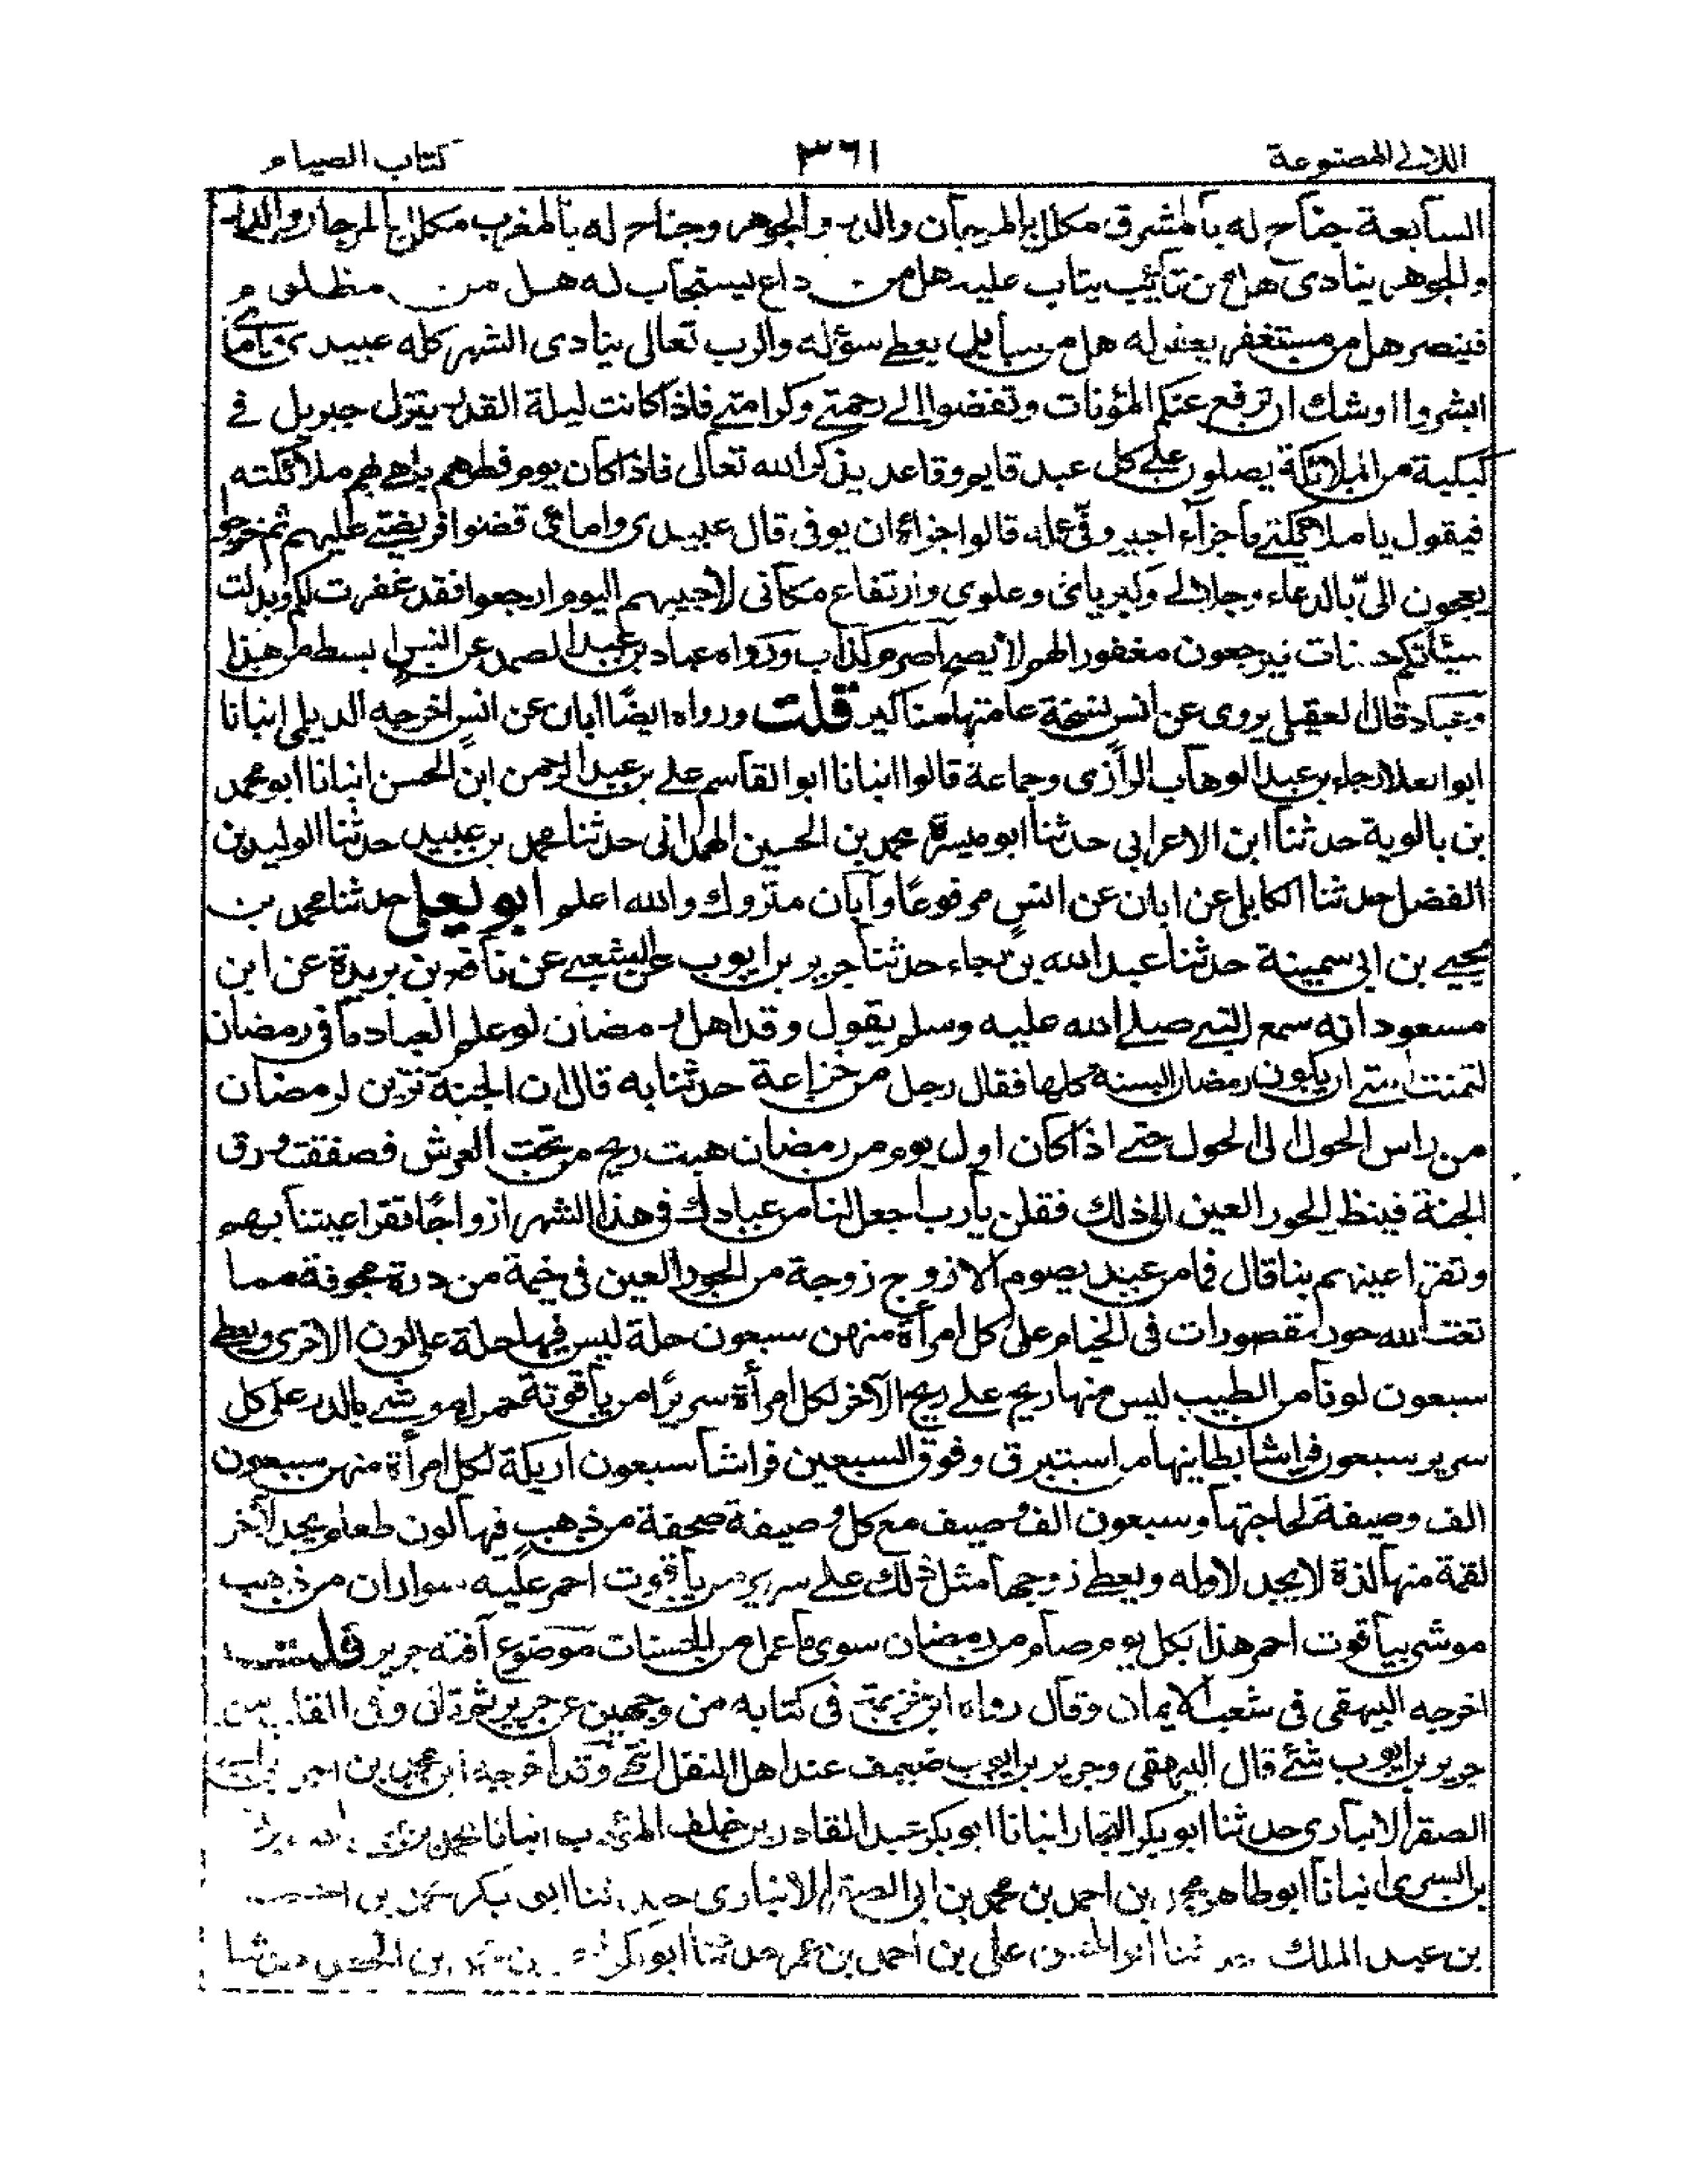 اللآلي المصنوعة ٣٦١ كتاب الصيام
السابعة جناح له بالمشرق مكلل بالمرجان والدر والجوهر وجناح له بالمغرب مكلل بالمرجان والدر
والجوهر ينادى هل من تائب يتاب عليه هل من داع يستجاب له هل من مظلوم
فينصر هل من مستغفر يغفر له هل من سائل يعطى سؤله والرب تعالى ينادى الشهر كله عبيدى وامائى
ابشروا اوشك ان ترفع عنكم المؤنات وتفضوا الى رحمتى وكرامتى فاذا كانت ليلة القدر ينزل جبريل فى
كبكبة من الملائكة يصلون على كل عبد قايم وقاعد يذكر الله تعالى فاذا كان يوم فطرهم باهى بهم ملائكته
فيقول يا ملائكتى ما جزآء اجير وفى عمله قالوا جزاؤه ان يوفى قال عبيدى وامائى قضوا فريضتى عليهم ثم خرجوا
يعجون الىّ بالدعاء وجلالى وكبريائى وعلوى وارتفاع مكانى لاجيبهم اليوم ارجعوا فقد غفرت لكم وبدلت
سيئاتكم حسنات فيرجعون مغفورا لهم لا يصح اصرم كذاب ورواه عباد بن عبد الصمد عن انس بابسط من هذا
وعباد قال العقيلى يروى عن انس نسخة عامتها مناكير قلت ورواه ايضًا ابان عن انس اخرجه الديلمى انبانا
ابو العلاء رجاء بن عبد الوهاب الرازى وجماعة قالوا انبانا ابو القاسم على بن عبد الرحمن ابن الحسن انبانا ابو محمد
بن بالوية حدثنا ابن الاعرابى حدثنا ابو ميسرة محمد بن الحسين الهمدانى حدثنا محمد بن عبيد حدثنا الوليد بن
الفضل حدثنا الكابلى عن ابان عن انس مرفوعًا وآبان متروك والله اعلم ابو يعلى حدثنا محمد بن
يحيى بن ابى سمينة حدثنا عبد الله بن رجاء حدثنا جرير بن ايوب عن الشعبى عن نافع بن بريدة عن ابن
مسعود انه سمع النبى صلى الله عليه وسلم يقول وقد اهل رمضان لو علم العباد ما فى رمضان
لتمنت امتى ان يكون رمضان السنة كلها فقال رجل من خزاعة حدثنا به قال ان الجنة تزين لرمضان
من راس الحول الى الحول حتى اذا كان اول يوم من رمضان هبت ريح من تحت العرش فصفقت ورق
الجنة فينظر الحور العين الى ذلك فقلن يارب اجعل لنا من عبادك فى هذا الشهر ازواجًا تقر اعيننا بهم
وتقر اعينهم بنا قال فما من عبد يصوم الا زوج زوجة من الحور العين فى خيمة من درة مجوفة مما
نعت الله حور مقصورات فى الخيام على كل امرأة منهن سبعون حلة ليس فيها حلة على لون الاخرى ويعطى
سبعون لونا من الطيب ليس منها ريح على ريح الآخر لكل امرأة سريرًا من ياقوتة حمراء موشى بالدر على كل
سرير سبعون فراشا بطاينها من استبرق وفوق السبعين فراشا سبعون اريكة لكل امرأة منهن سبعون
الف وصيفة لحاجتها وسبعون الف وصيف مع كل وصيفة صحفة من ذهب فيها لون طعام يجد لآخر
لقمة منها لذة لا يجد لاوله ويعطى زوجها مثل ذلك على سرير من ياقوت احمر عليه سواران من ذهب
موشى بياقوت احمر هذا بكل يوم صام من رمضان سوى ما عمل من الحسنات موضوع آفته جرير قلت
اخرجه البيهقى فى شعب الايمان وقال رواه ابن خزيمة فى كتابه من وجهين عن جرير ثم قال وفى القلب من
جرير بن ايوب شئ قال البيهقى وجرير بن ايوب ضعيف عند اهل النقل انتهى وقد اخرجه
الصقر الانبارى حدثنا ابو بكر النجار انبانا ابو بكر عبد القادر بن خلف المؤدب انبانا
بن السرى انبانا ابو طاهر محمد بن احمد بن محمد بن ابى الصقر الانبارى حدثنا ابى بكر
بن عبد الملك حدثنا ابو الحسن على بن احمد بن عمر حدثنا ابو بكر